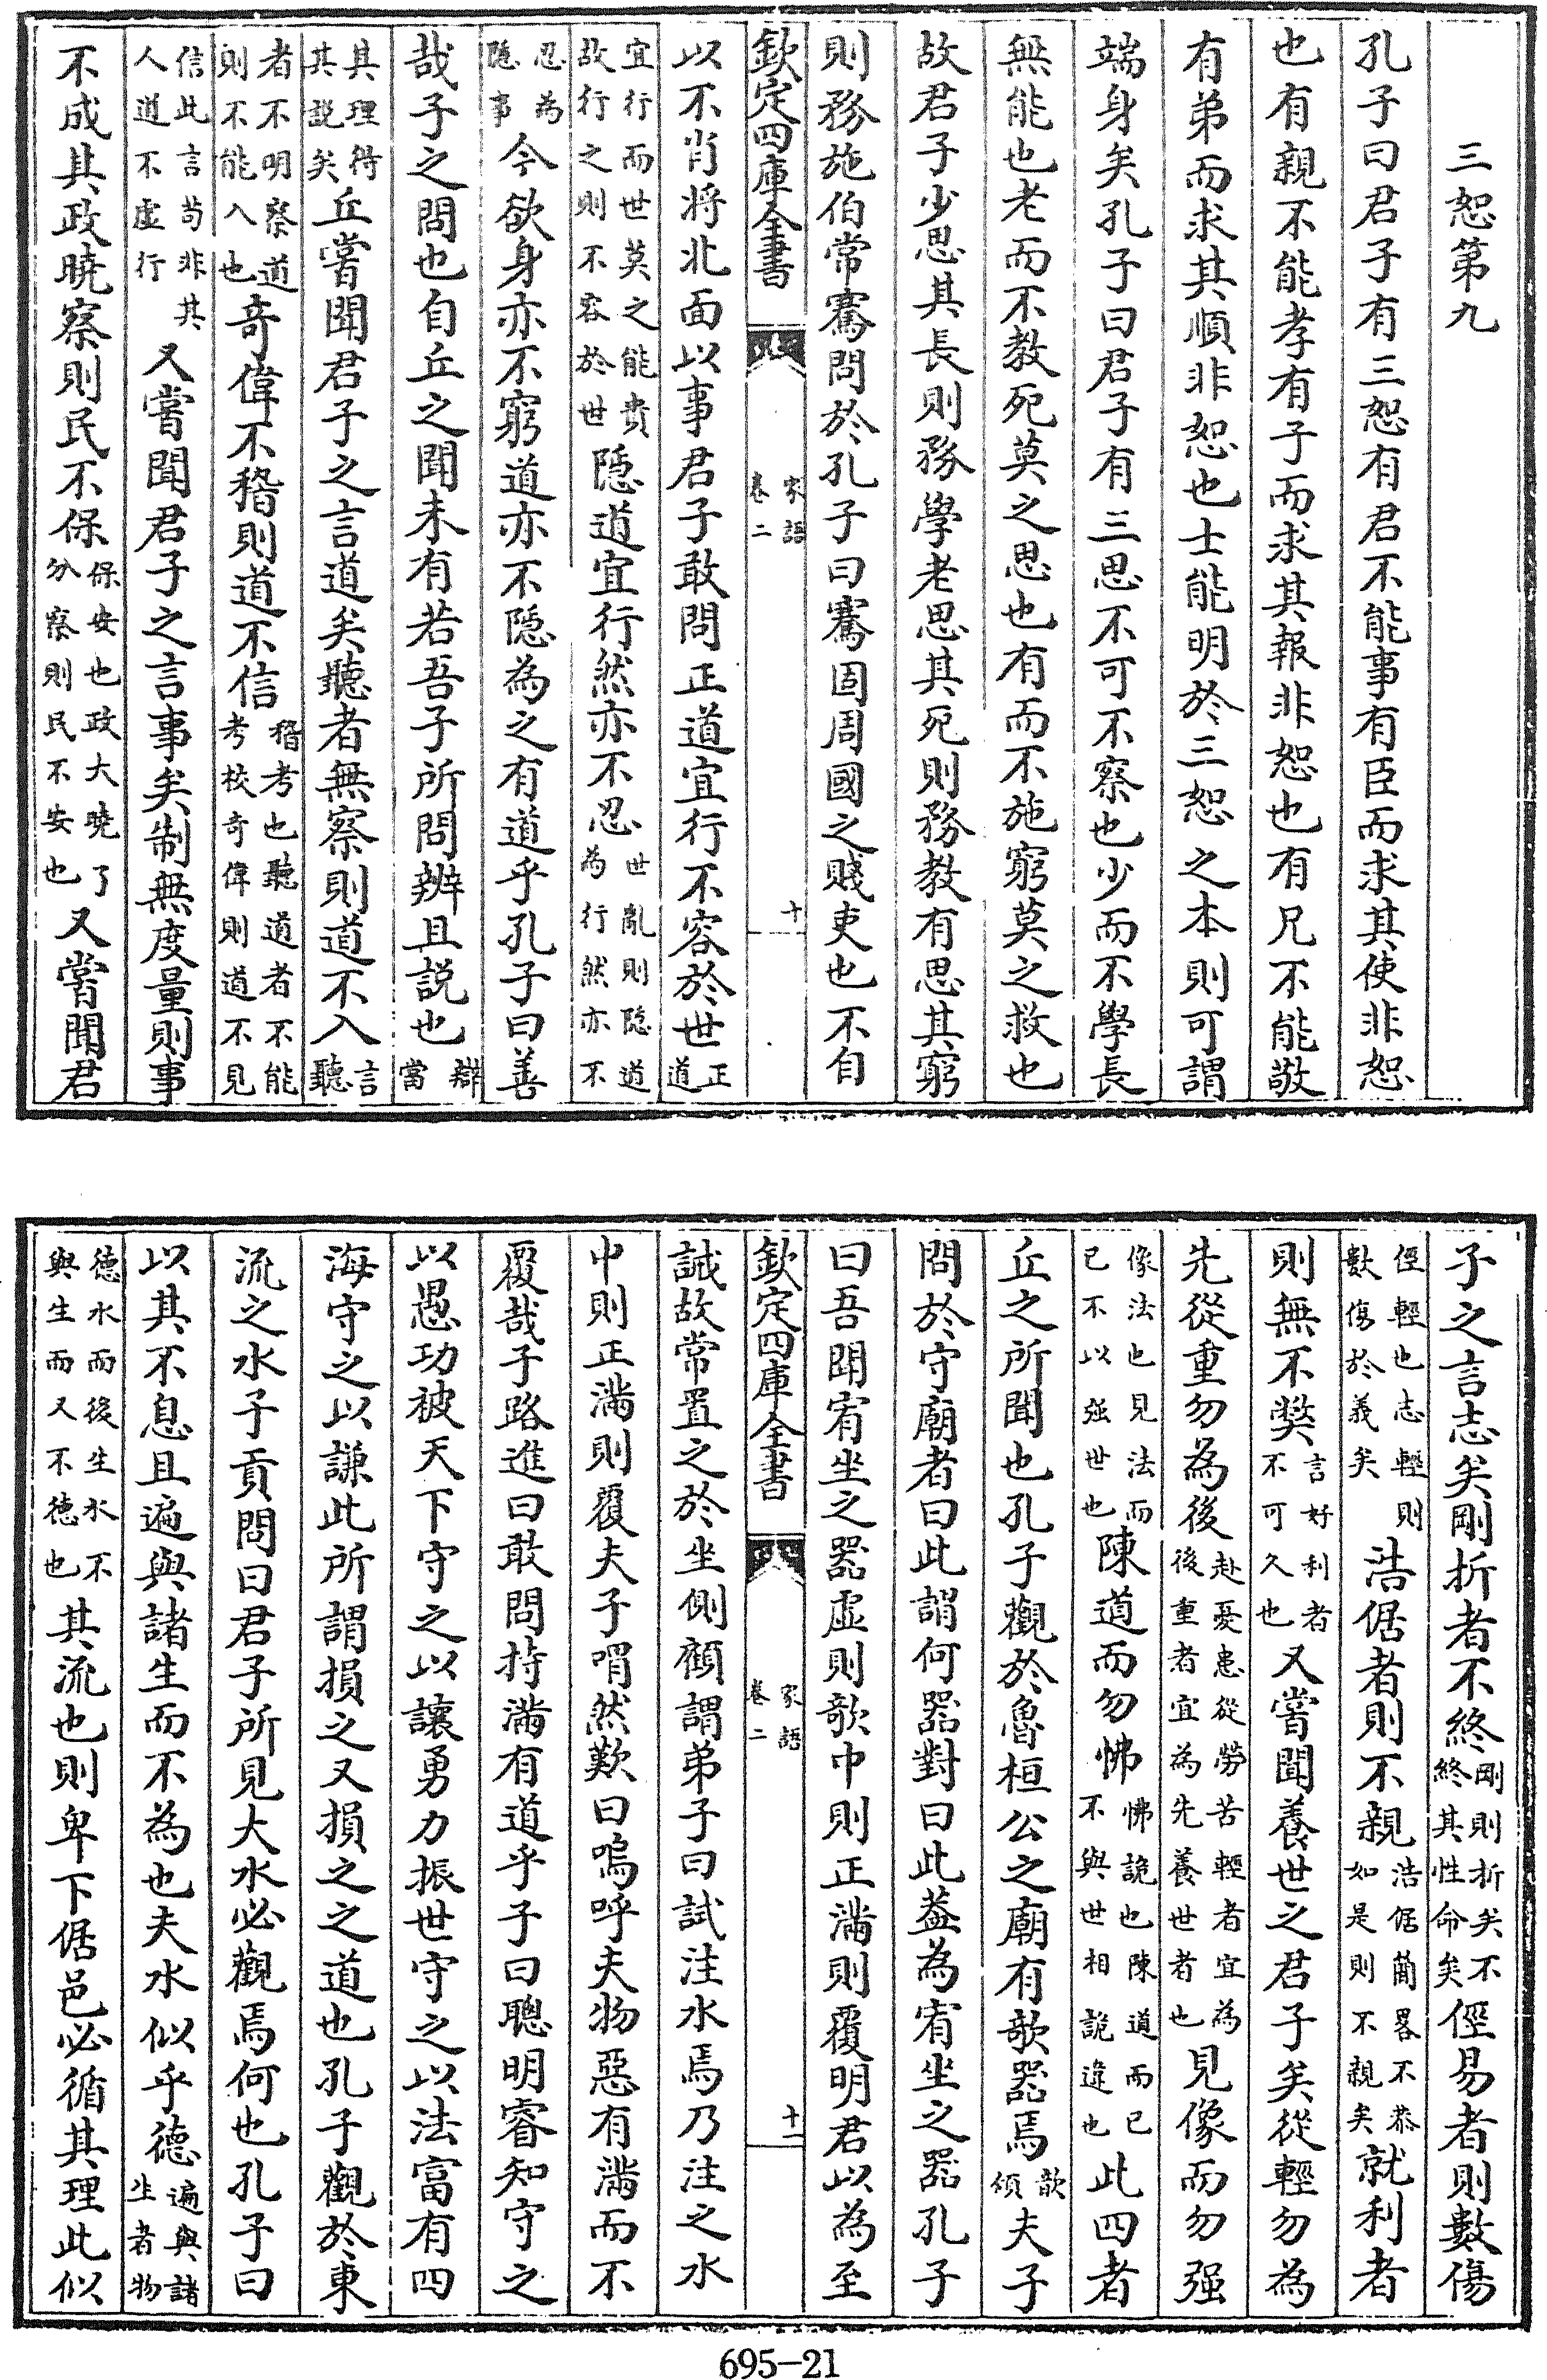 三恕第九
孔子曰君子有三恕有君不能事有臣而求其使非恕
也有親不能孝有子而求其報非恕也有兄不能敬
有弟而求其順非恕也士能明於三恕之本則可謂
端身矣孔子曰君子有三思不可不察也少而不學長
無能也老而不教死莫之思也有而不施窮莫之救也
故君子少思其長則務學老思其死則務教有思其窮
則務施伯常騫問於孔子曰騫固周國之賤吏也不自
欽定四庫全書 家語卷二 十
以不肖將北面以事君子敢問正道宜行不容於世正道
宜行而世莫之能貴故行之則不容於世隱道宜行然亦不忍世亂則隐道為行然亦不
忍為隱事今欲身亦不窮道亦不隱為之有道乎孔子曰善
哉子之問也自丘之聞未有若吾子所問辨且説也辯當
其理得其説矣丘嘗聞君子之言道矣聽者無察則道不入言聽
者不明察道則不能入也奇偉不稽則道不信稽考也聽道者不能考校奇偉則道不見
信此言苟非其人道不虚行又嘗聞君子之言事矣制無度量則事
不成其政曉察則民不保保安也政大曉了分察則民不安也又嘗聞君
子之言志矣剛折者不終剛則折矣不終其性命矣徑易者則數傷
徑輕也志輕則數傷於義矣浩倨者則不親浩倨簡畧不恭如是則不親矣就利者
則無不獘言好利者不可久也又嘗聞養世之君子矣從輕勿為
先從重勿為後赴憂患從勞苦輕者宜為後重者宜為先養世者也見像而勿强
像法也見法而已不以强世也陳道而勿怫怫詭也陳道而已不與世相詭違也此四者
丘之所聞也孔子觀於魯桓公之廟有欹器焉欹傾夫子
問於守廟者曰此謂何器對曰此葢為宥坐之器孔子
曰吾聞宥坐之器虛則欹中則正滿則覆明君以為至
欽定四庫全書 家語卷二 十一
誠故常置之於坐側顧謂弟子曰試注水焉乃注之水
中則正滿則覆夫子喟然歎曰嗚呼夫物惡有滿而不
覆哉子路進曰敢問持滿有道乎子曰聰明睿知守之
以愚功被天下守之以讓勇力振世守之以法富有四
海守之以謙此所謂損之又損之之道也孔子觀於東
流之水子貢問曰君子所見大水必觀焉何也孔子曰
以其不息且遍與諸生而不為也夫水似乎德遍與諸生者物
德水而後生水不與生而又不德也其流也則卑下倨邑必循其理此似
695-21